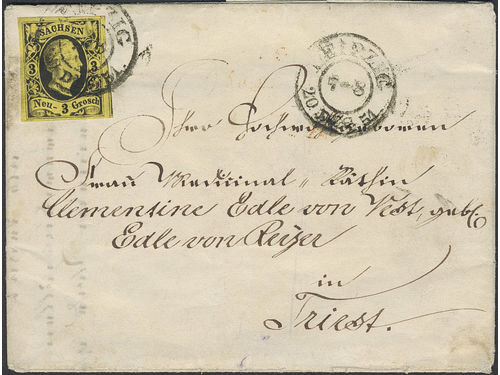 SACHSEN
3 3
Neu- 3 Grosch.
LEIPZIG
LEIPZIG
7-8
Ihro Hochwohlgeboren
Frau Medicinal-Räthin
Clementine Edle von Vest, geb.
Edle von
in
Triest.